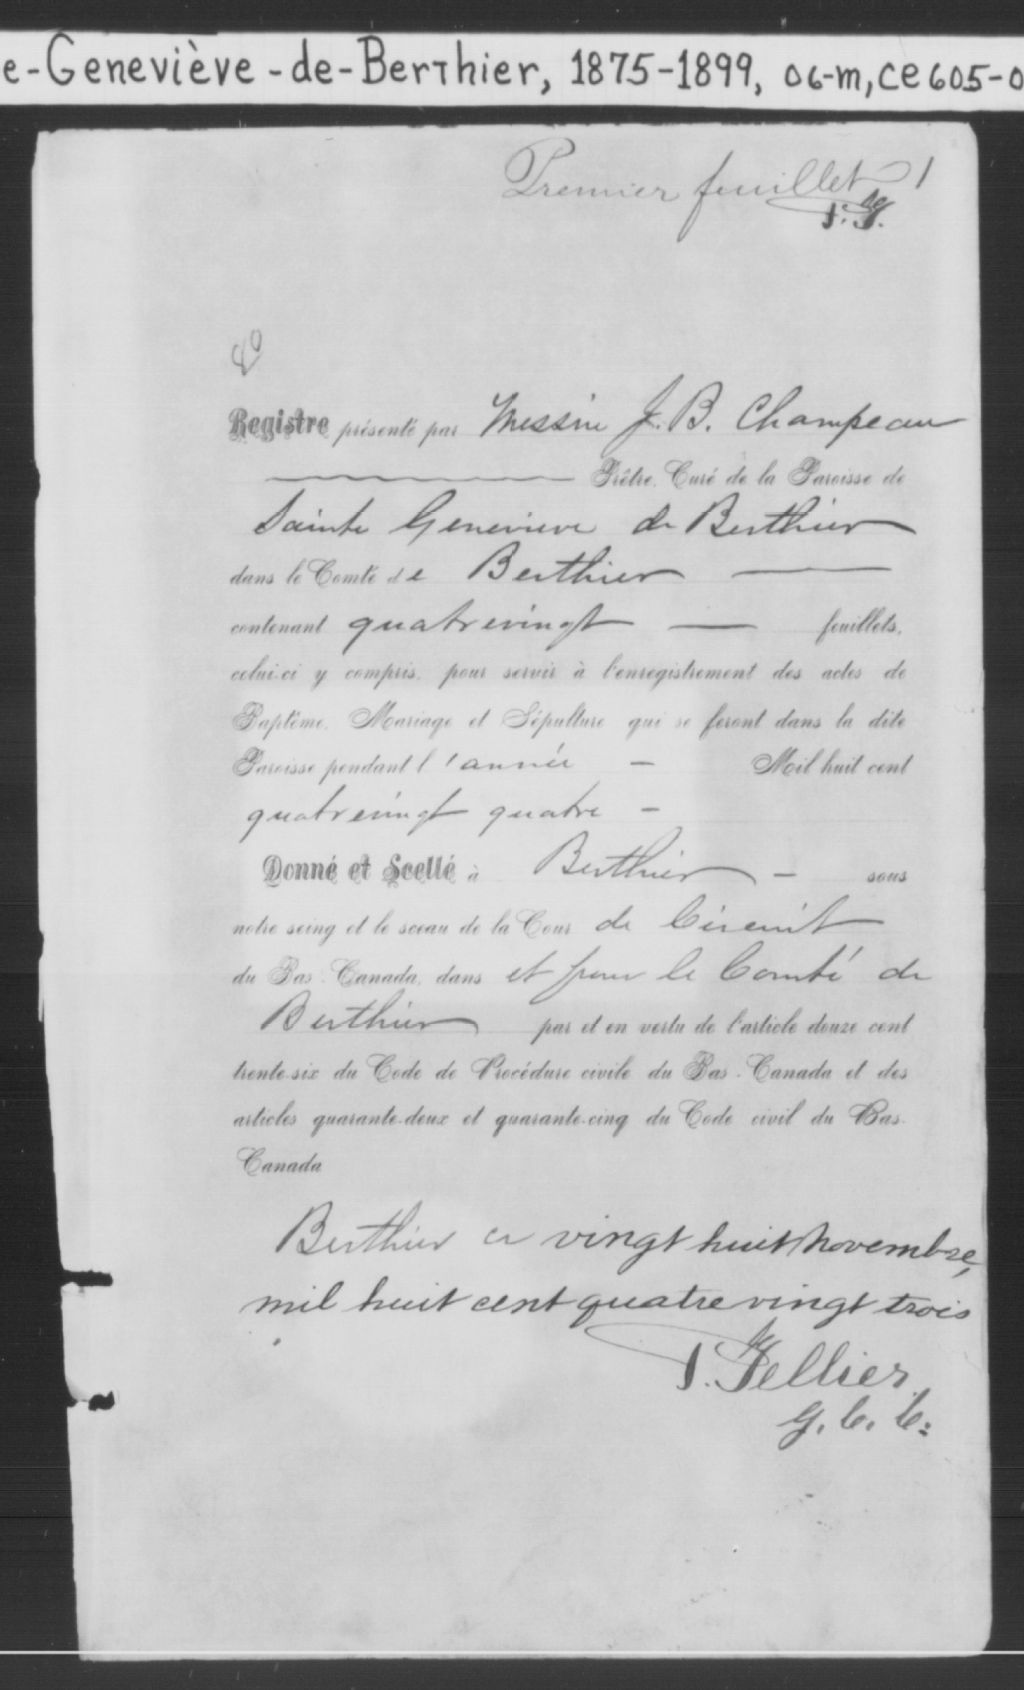 e-Geneviève-de-Berthier, 1875-1899, 06-m, ce 605-0
Premier feuillet 1
Registre présenté par Messire J. B. Champeau
Prêtre, Curé de la Paroisse de
Sainte Genevieve de Berthier
dans le Comté de Berthier
contenant quatrevingt feuillets,
celui-ci y compris, pour servir à l'enregistrement des actes de
Baptême, Mariage et Sépulture qui se feront dans la dite
Paroisse pendant l'année Mil huit cent
quatrevingt quatre -
Donné et Scellé à Berthier - sous
notre seing et le sceau de la Cour de Circuit
du Bas-Canada, dans et pour le Comté de
Berthier par et en vertu de l'article douze cent
trente-six du Code de Procédure civile du Bas-Canada et des
articles quarante-deux et quarante-cinq du Code civil du Bas-
Canada
Berthier ce vingt huit Novembre,
mil huit cent quatre vingt trois
P. Tellier
G. C. C.